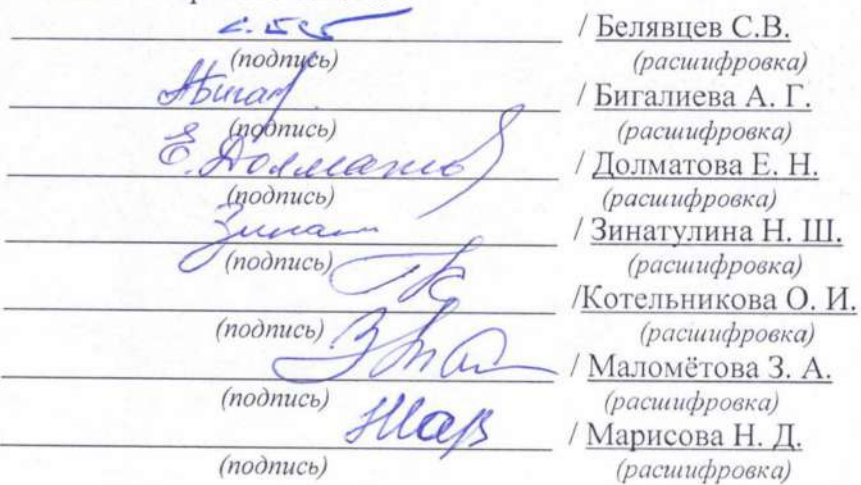 / Белявцев С.В.
(подпись) (расшифровка)
/ Бигалиева А. Г.
(подпись) (расшифровка)
Е. Долматов / Долматова Е. Н.
(подпись) (расшифровка)
Зинат / Зинатулина Н. Ш.
(подпись) (расшифровка)
/Котельникова О. И.
(подпись) (расшифровка)
/ Маломётова З. А.
(подпись) (расшифровка)
/ Марисова Н. Д.
(подпись) (расшифровка)